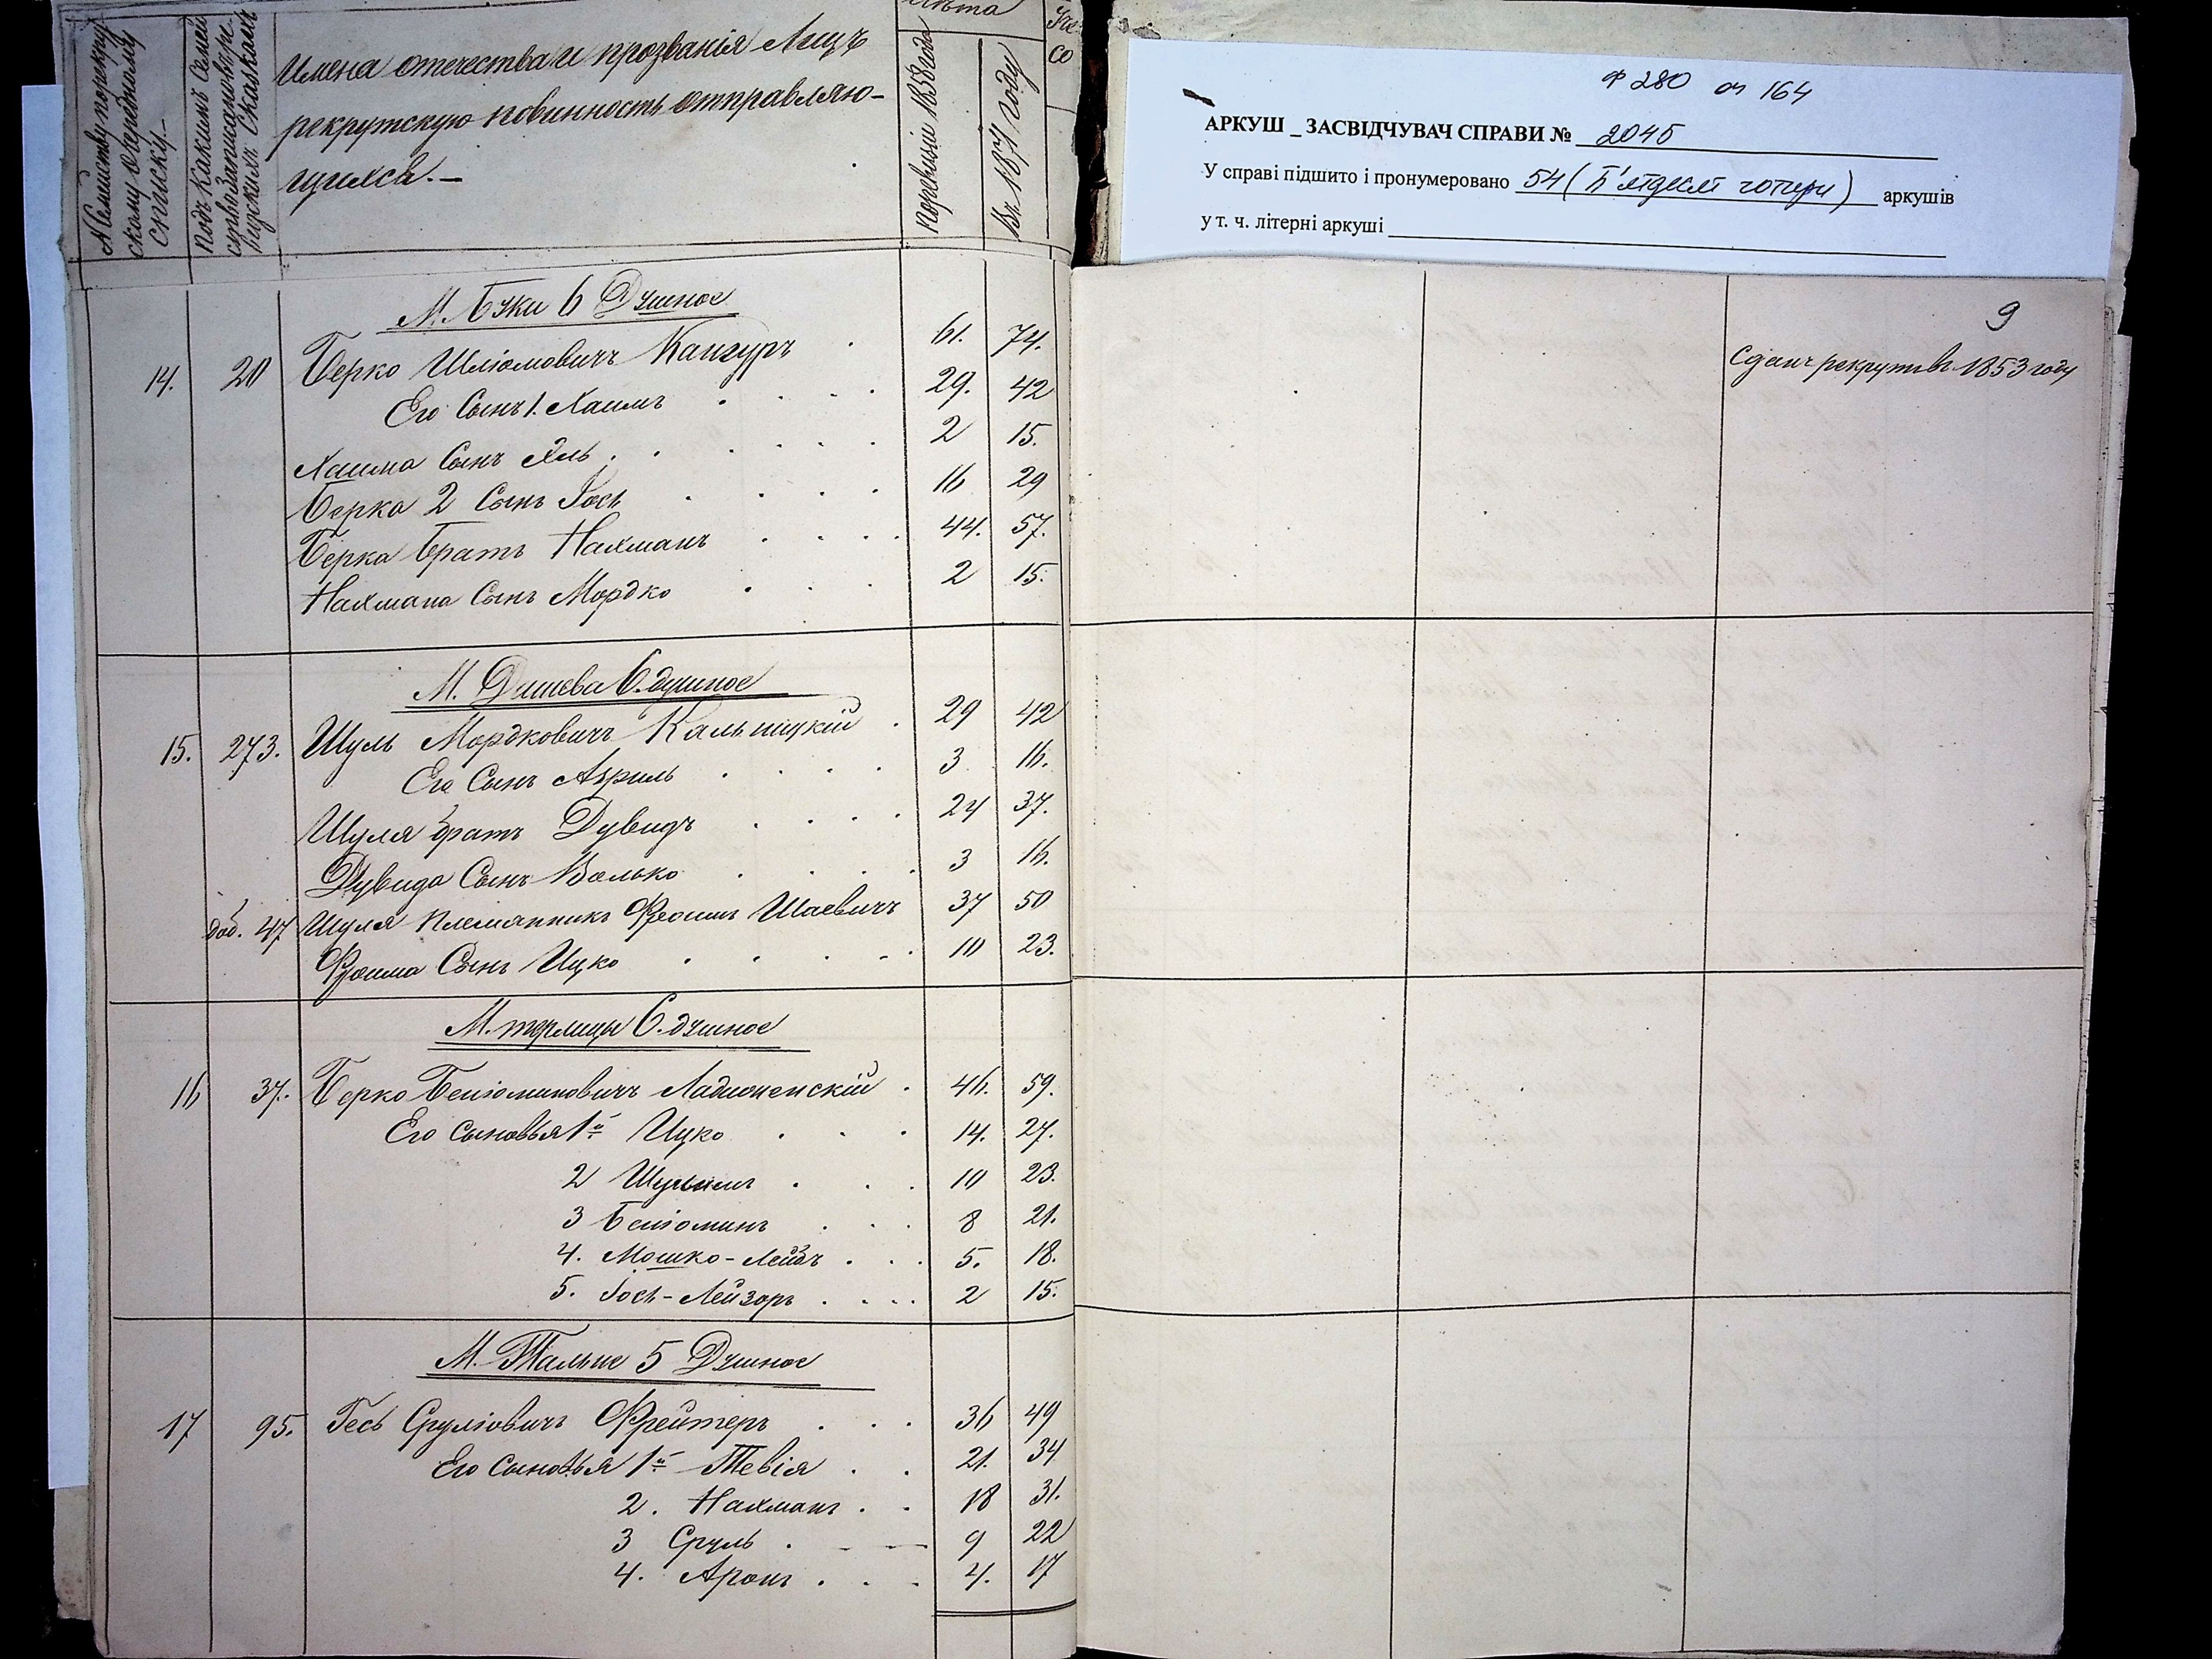 Лѣта
№ семейству по рекрут
скому очередному
списку.—
Подъ какимъ семей
ству записаны въ ре
визскихъ сказкахъ
Имена отечества и прозванія лицъ
рекрутскую повинность отправляю-
щихся.—
По ревизіи 1858 года
Въ 1871 году
Ф 280 оп 164
АРКУШ _ ЗАСВІДЧУВАЧ СПРАВИ № 2045
У справі підшито і пронумеровано 54 (П'ятдесят чотири) аркушів
у т. ч. літерні аркуші
9
М. Буки 6 Душное
14. 20 Берко Шліомовичъ Кангуръ 61. 74. Сданъ рекрутъ въ 1853 году
Его Сынъ 1. Хаимъ 29. 42
Хаима Сынъ Яль 2 15.
Берка 2 Сынъ Іось 16 29
Берка братъ Нахманъ 44. 57.
Нахмана Сынъ Мордко 2 15.
М. Дашева 6. душное
15. 273. Шуль Мордковичъ Кальницкій 29 42
Его Сынъ Азриль 3 16.
Шуля братъ Дувидъ 24 37.
Дувида Сынъ Волько 3 16.
доб. 47 Шуля племянникъ Фроимъ Шаевичъ 37 50
Фроима Сынъ Ицко 10 23.
М. терлицы 6. душное
16 37. Берко Беніоминовичъ Ладиженскій 46. 59.
Его сыновья 1й Ицко 14. 27.
2 Шулимъ 10 23.
3 Беніоминъ 8 21.
4. Мошко-Лейбъ 5. 18.
5. Іось-Лейзоръ 2 15.
М. Тальне 5 Душное
17 95. Гесь Сруліовичъ Фрейтеръ 36 49
Его сыновья 1й Тевія 21. 34
2. Нахманъ 18 31.
3 Сруль 9 22
4. Аронъ 4. 17